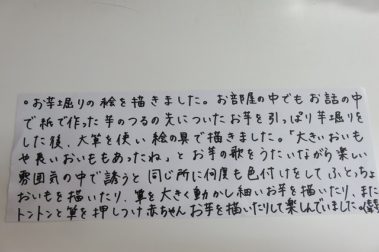 。お芋掘りの絵を描きました。お部屋の中でもお話の中
で紙で作った芋のつるの先についたお芋を引っぱり芋掘りを
した後、大筆を使い絵の具で描きました。「大きいおいも
や長いおいももあったね」とお芋の歌をうたいながら楽しい
雰囲気の中で誘うと同じ所に何度も色付けをしてふとっちょ
おいもを描いたり、筆を大きく動かし細いお芋を描いたり、また
トントンと筆を押しつけ赤ちゃんお芋を描いたりして楽しんでいました。